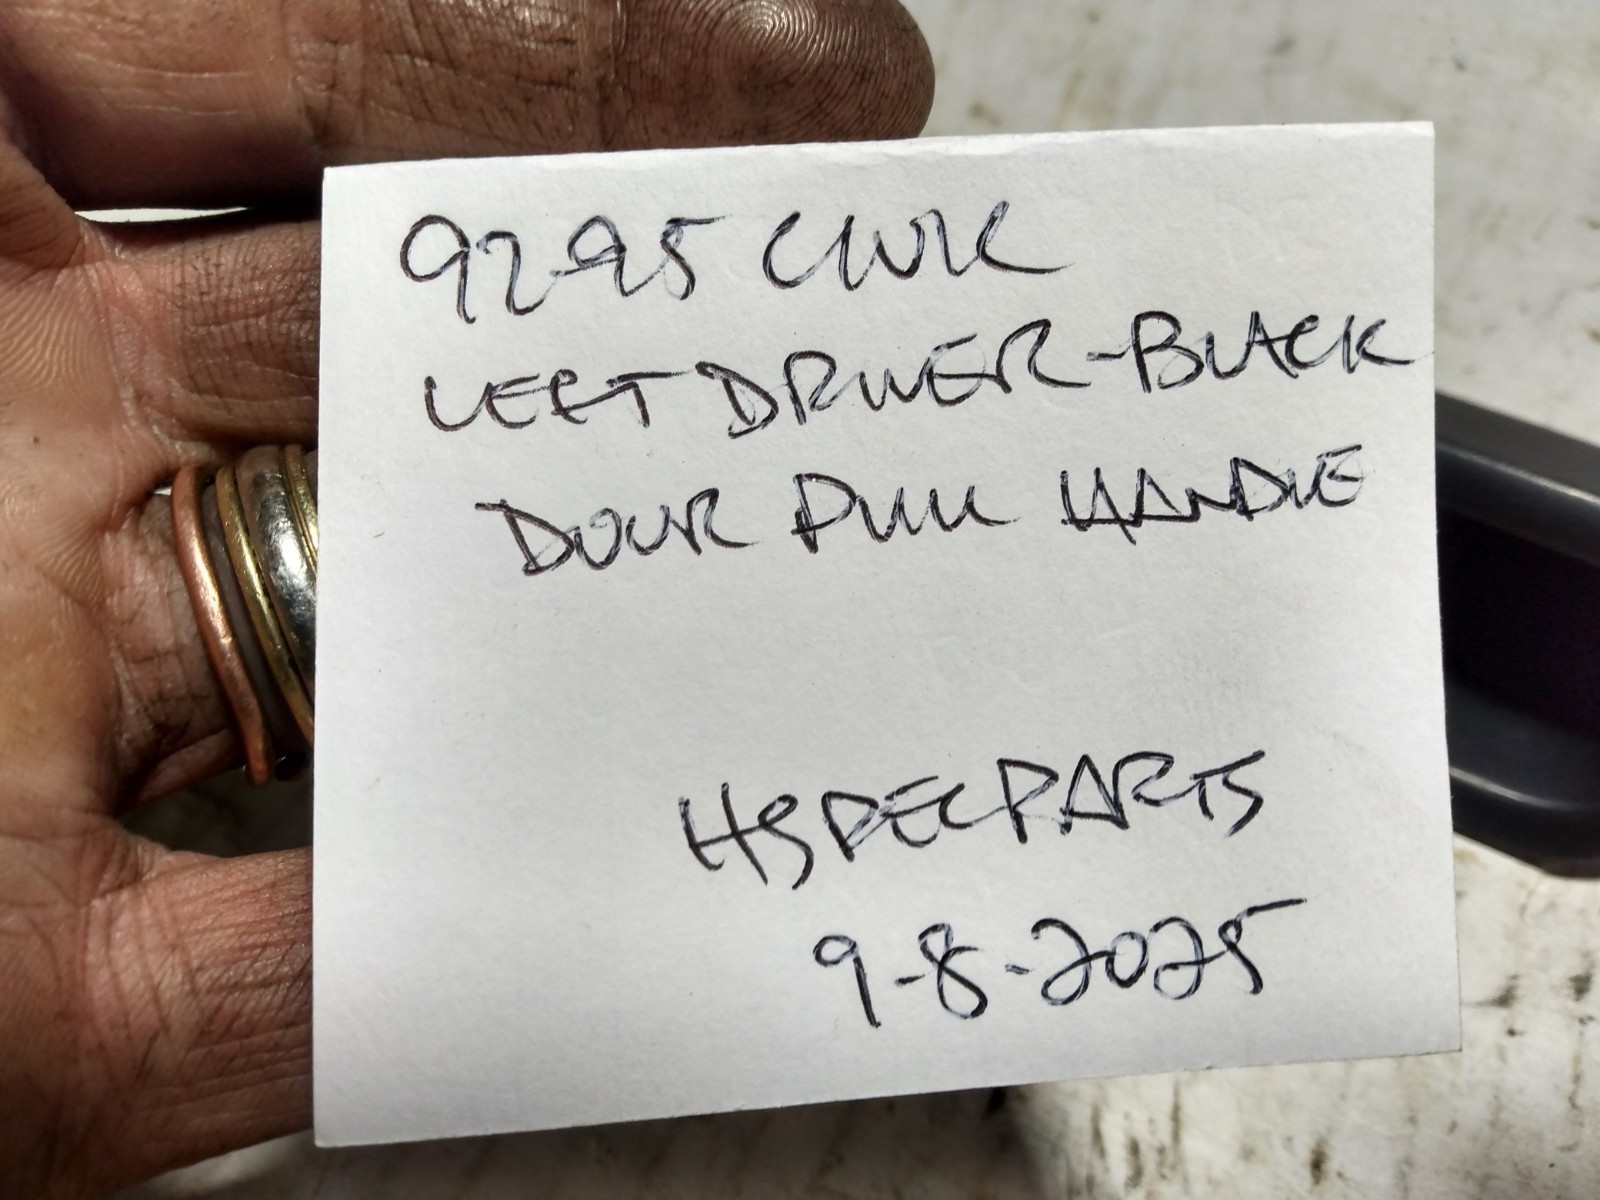 92-95 CIVIC
LEFT DRIVER-BLACK
DOOR PULL HANDLE
HSPECPARTS
9-8-2025